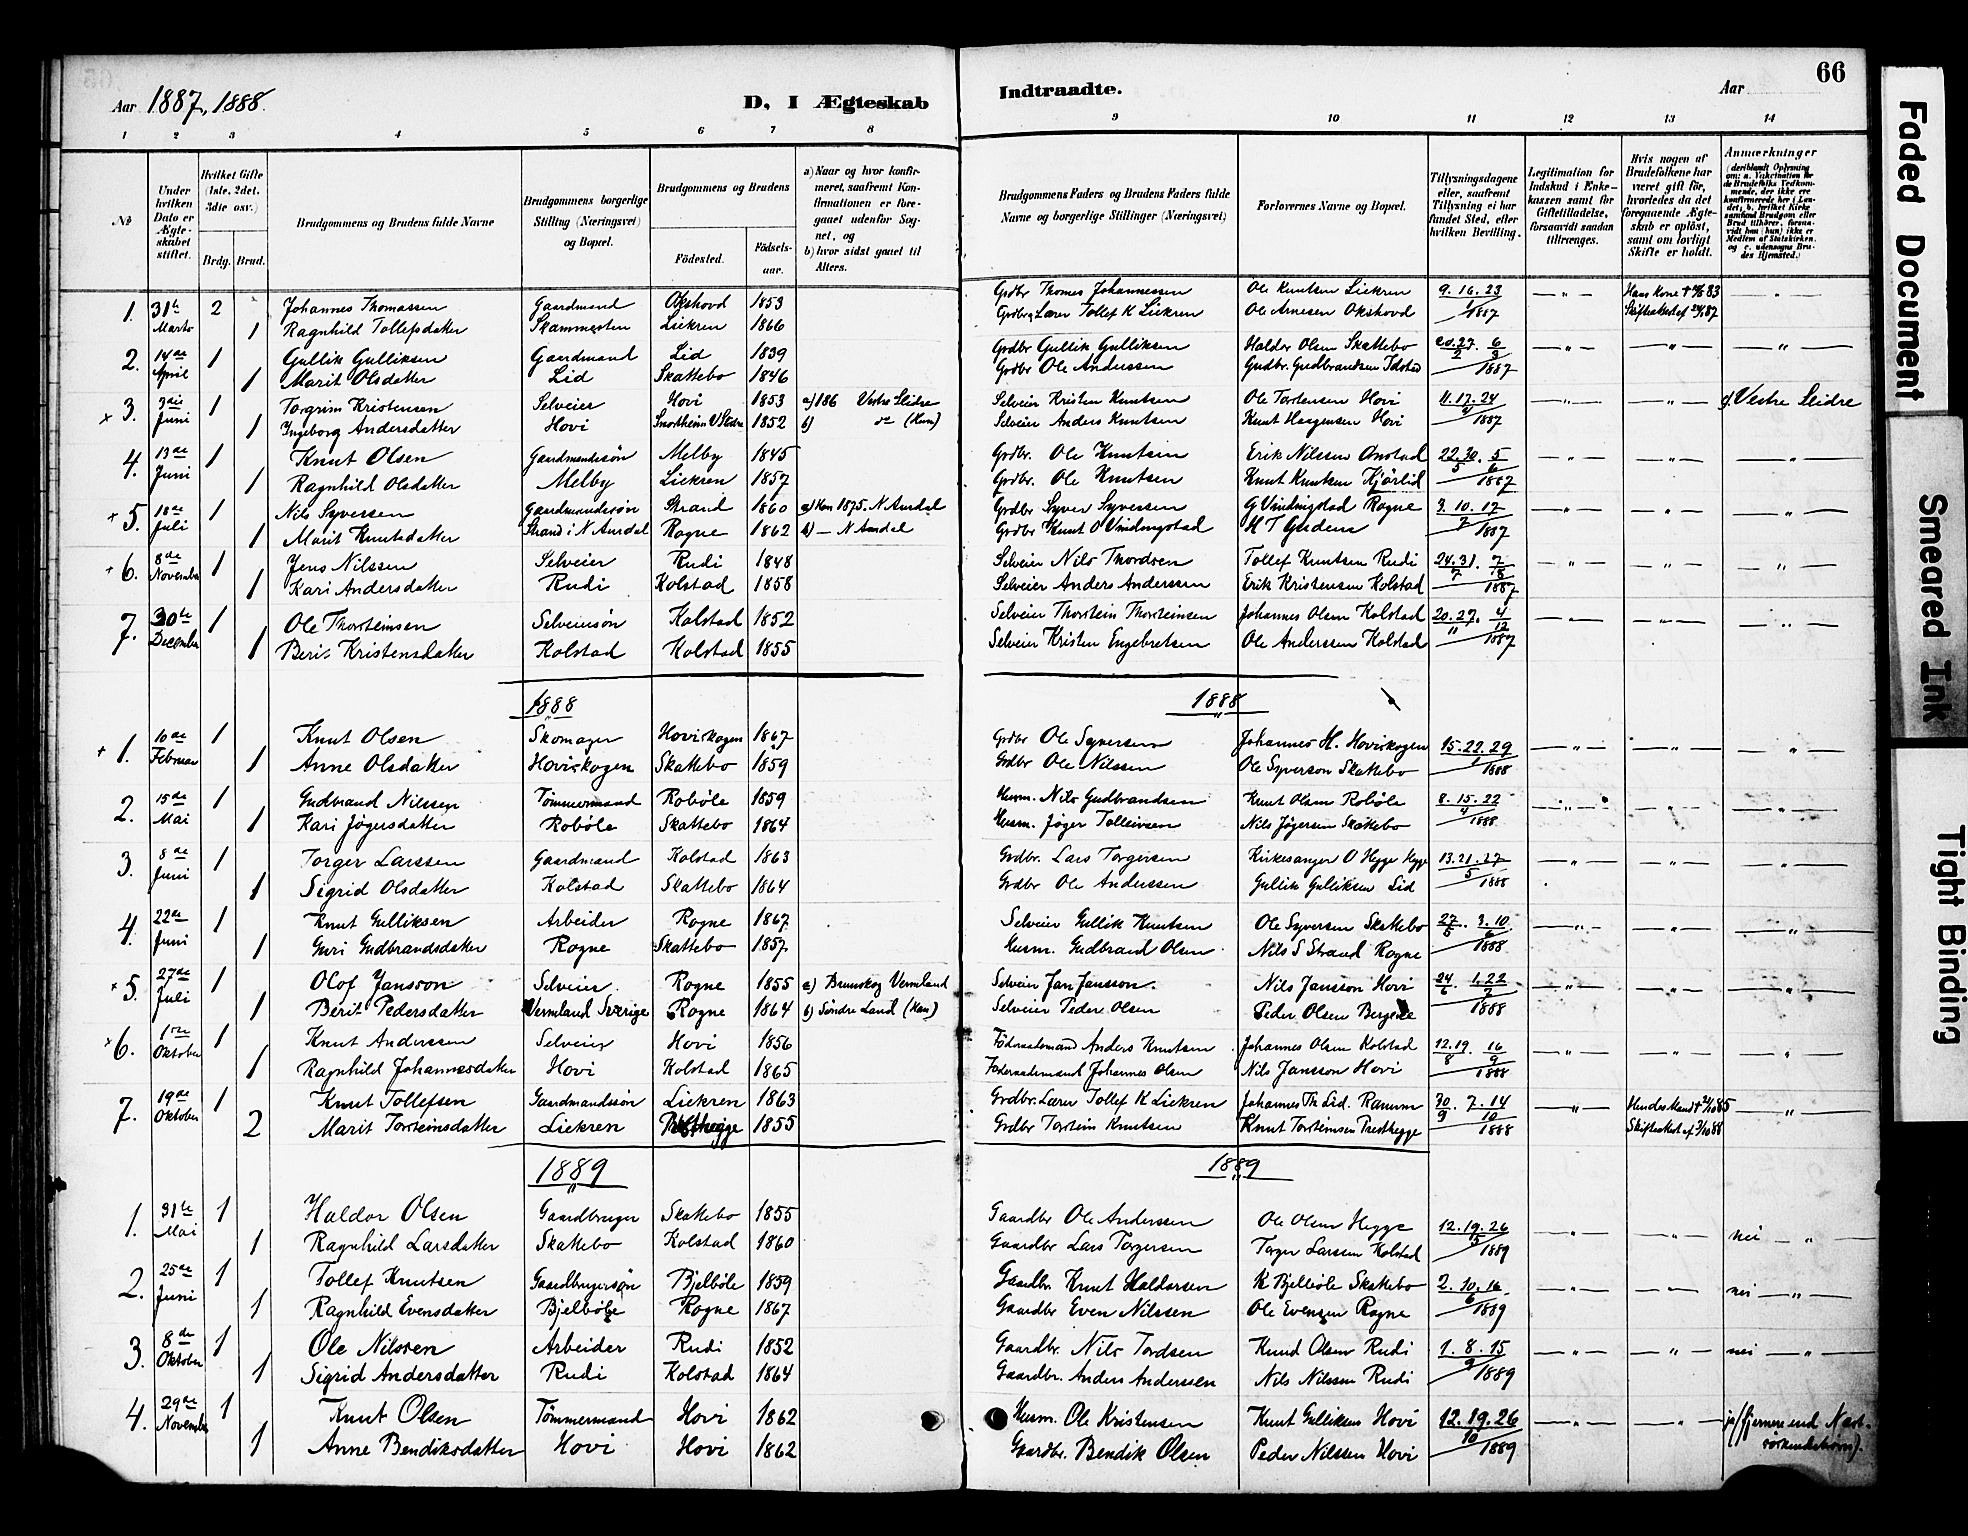 66
Aar 1887, 1888.
D. I Ægteskab Indtraadte.
Aar
1 2 3 4 5 6 7 8 9 10 11 12 13 14
No
Under hvilken Dato er Ægteskabet stiftet.
Hvilket Gifte (1ste, 2det, 3die osv.)
Brdg. Brud.
Brudgommens og Brudens fulde Navne
Brudgommens borgerlige Stilling (Næringsvei) og Bopæl.
Brudgommens og Brudens
Fødested. Fødselsaar.
a) Naar og hvor konfirmeret, saafremt Konfirmationen er foregaaet udenfor Sognet, og
b) hvor sidst gaaet til Alters.
Brudgommens Faders og Brudens Faders fulde Navne og borgerlige Stillinger (Næringsvei)
Forlovernes Navne og Bopæl.
Tillysningsdagene eller, saafremt Tillysning ei har fundet Sted, efter hvilken Bevilling.
Legitimation for Indskud i Enkekassen samt for Giftetilladelse, forsaavidt saadan tiltrænges.
Hvis nogen af Brudefolkene har været gift før, hvorledes da det foregaaende Ægteskab er opløst, samt om lovligt Skifte er holdt.
Anmærkninger
1. 31te Marts 2 Johannes Thomassen Gaardmand Okshovd 1853 Grdbr Thomes Johannessen Ole Knutsen Liekren 9. 16. 23 / 1 1887 Hans Kone
1 Ragnhild Tollefsdatter Skammesten Liekren 1866 Grdbr. Lærer Tollef K Liekren Ole Arnesen Okshovd
2. 14de April 1 Gullik Gulliksen Gaardmand Lid 1839 Grdbr Gullik Gulliksen Haldor Olsen Skattebo 20. 27. 6 / 2 3 1887
1 Marit Olsdatter Lid Skattebo 1846 Grdbr Ole Anderssen Gudbr. Gudbrandsen Idstad
+ 3. 3die Juni 1 Torgrim Kristensen Selveier Hovi 1853 a) 186 Vestre Slidre Selveier Kristen Knutsen Ole Torstensen Hovi 11. 17. 24 / 4 1887 Vestre Slidre
1 Ingeborg Andersdatter Hovi V Slidre 1852 b) do (Hun) Selveier Anders Knutsen Knut Hovi
4. 13de Juni 1 Knut Olsen Gaardmandssøn Melby 1845 Grdbr. Ole Knutsen Erik Nilssen Onstad 22. 30. 5 / 5 6 1887
1 Ragnhild Olsdatter Melby Liekren 1857 Grdbr. Ole Knutsen Knut Knutsen Kjørlid
+ 5. 18de Juli 1 Nils Syvessen Gaardmandssøn Strand 1860 a) Han 1875. N Aurdal Grdbr Syver Syvessen G Vindingstad Rogne 3. 10. 17 / 7 1887
1 Marit Knutsdatter Strand i N Aurdal Rogne 1862 b) — N Aurdal Grdbr Knut O Vindingstad H T
+ 6. 8de November 1 Jens Nilssen Selveier Rudi 1848 Selveier Nils Thordsen Tollef Knutsen Rudi 24. 31. 7 1887
1 Kari Andersdatter Rudi Kolstad 1858 Selveier Anders Anderssen Erik Kristensen Kolstad
7. 30te December 1 Ole Thorsteinsen Selveiersøn Kolstad 1852 Selveier Thorstein Thorsteinsen Johannes Olsen Kolstad 20. 27. 4 / 11 12 1887
1 Berit Kristensdatter Kolstad Kolstad 1855 Selveier Kristen Engebretsen Ole Anderssen Kolstad
1888 1888
+ 1. 10de Februar 1 Knut Olsen Skomager Hoviskogen 1867 Grdbr Ole Syversen Johannes H. Hoviskogen 15. 22. 29 / 1 1888
1 Anne Olsdatter Hoviskogen Skattebo 1859 Grdbr Ole Nilssen Ole Syverson Skattebo
2. 15de Mai 1 Gudbrand Nilssen Tømmermand Robøle 1859 Husm. Nils Gudbrandsen Knut Olsen Robøle 8. 15. 22 / 4 1888
1 Kari Jøgersdatter Robøle Skattebo 1864 Husm. Jøger Tolleivsen Nils Jøgersen Skattebo
3. 8de Juni 1 Torger Larssen Gaardmand Kolstad 1863 Grdbr. Lars Torgersen Kirkesanger O Hegge Hegge 13. 21. 27 / 5 1888
1 Sigrid Olsdatter Kolstad Skattebo 1864 Grdbr Ole Anderssen Gullik Gulliksen Lid
4. 22de Juni 1 Knut Gulliksen Arbeider Rogne 1867 Selveier Gullik Knutsen Ole Syversen Skattebo 27/5. 3. 10 / 6 1888
1 Guri Gudbrandsdatter Rogne Skattebo 1857 Husm. Gudbrand Olsen Nils S Strand Rogne
+ 5. 27de Juli 1 Olof Jansson Selveier Rogne 1855 a) Brunskog Vermland Selveier Jan Jansson Nils Jansson Hovi 24/6. 1. 22 / 7 1888
1 Berit Pedersdatter Vermland Sverige Rogne 1864 b) Søndre Land (Han) Selveier Peder Olsen Peder Olsen Bergene
+ 6. 1ste Oktober 1 Knut Anderssen Selveier Hovi 1856 Føderaadsmand Anders Knutsen Johannes Olsen Kolstad 12. 19. 16 / 8 9 1888
1 Ragnhild Johannesdatter Hovi Kolstad 1865 Føderaadsmand Johannes Olsen Nils Jansson Hovi
7. 19de Oktober 1 Knut Tollefsen Gaardmandssøn Liekren 1863 Grdbr. Lærer Tollef K Liekren Johannes Th Lid. Ranum 30/9 7. 14 / 10 1888 Hendes Mand
2 Marit Torsteinsdatter Liekren Presthegge 1855 Grdbr Torstein Knutsen Knut Torsteinsen Presthegge
1889 1889
1. 31te Mai 1 Haldor Olsen Gaardbruger Skattebo 1855 Gaardbr Ole Anderssen Ole Olsen Hegge 12. 19. 26 1889 nei — „
1 Ragnhild Larsdatter Skattebo Kolstad 1860 Gaardbr Lars Torgersen Torger Larssen Kolstad
2. 25de Juni 1 Tollef Knutsen Gaardbrugersøn Bjelbøle 1859 Gaardbr. Knut Haldorsen K Bjelbøle Skattebo 2. 10. 16 / 6 1889 nei — „ —
1 Ragnhild Evensdatter Bjelbøle Rogne 1867 Gaardbr Even Nilssen Ole Evensen Rogne
3. 8de Oktober 1 Ole Nilssen Arbeider Rudi 1852 Gaardbr. Nils Tordsen Knud Olsen Rudi 1. 8. 15 / 9 1889 nei — „ —
1 Sigrid Andersdatter Rudi Kolstad 1864 Gaardbr. Anders Anderssen Nils Nilssen Rudi
4. 29de November 1 Knut Olsen Tømmermand Hovi 1862 Husm. Ole Kristensen Knut Gulliksen Hovi 12. 19. 26 / 10 1889 ja (fjernere end Næstsøskendebørn).
1 Anne Bendiksdatter Hovi Hovi 1862 Gaardbr. Bendik Olsen Peder Nilssen Hovi
Faded Document
Smeared Ink
Tight Binding